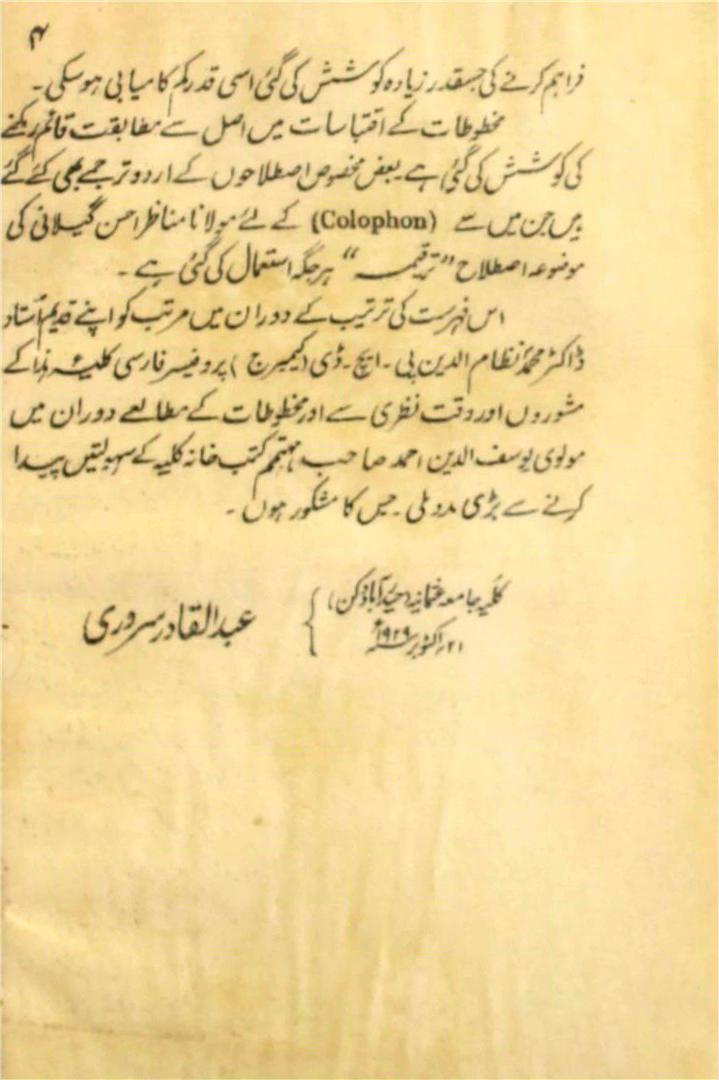 ۴
فراہم کرنے کی جسقدر زیادہ کوشش کی گئی اسی قدر کم کامیابی ہوسکی۔
مخطوطات کے اقتباسات میں اصل سے مطابقت قائم رکھنے
کی کوشش کی گئی ہے۔ بعض مخصوص اصطلاحوں کے اردو ترجمے بھی کئے گئے
ہیں جن میں سے (Colophon) کے لئے مولانا مناظر احسن گیلانی کی
موضوعہ اصطلاح "ترقیمہ" ہر جگہ استعمال کی گئی ہے۔
اس فہرست کی ترتیب کے دوران میں مرتب کو اپنے قدیم استاد
ڈاکٹر محمد نظام الدین پی۔ ایچ۔ ڈی (کیمبرج) پروفیسر فارسی کلیہ ہذا کے
مشوروں اور وقت نظری سے اور مخطوطات کے مطالعے دوران میں
مولوی یوسف الدین احمد صاحب مہتمم کتب خانہ کلیہ کے سہولتیں پیدا
کرنے سے بڑی مدد ملی۔ جس کا مشکور ہوں۔
کلیہ جامعہ عثمانیہ (حیدرآباد دکن)
۲۱؍ اکتوبر ۱۹۲۹ء
عبدالقادر سروری